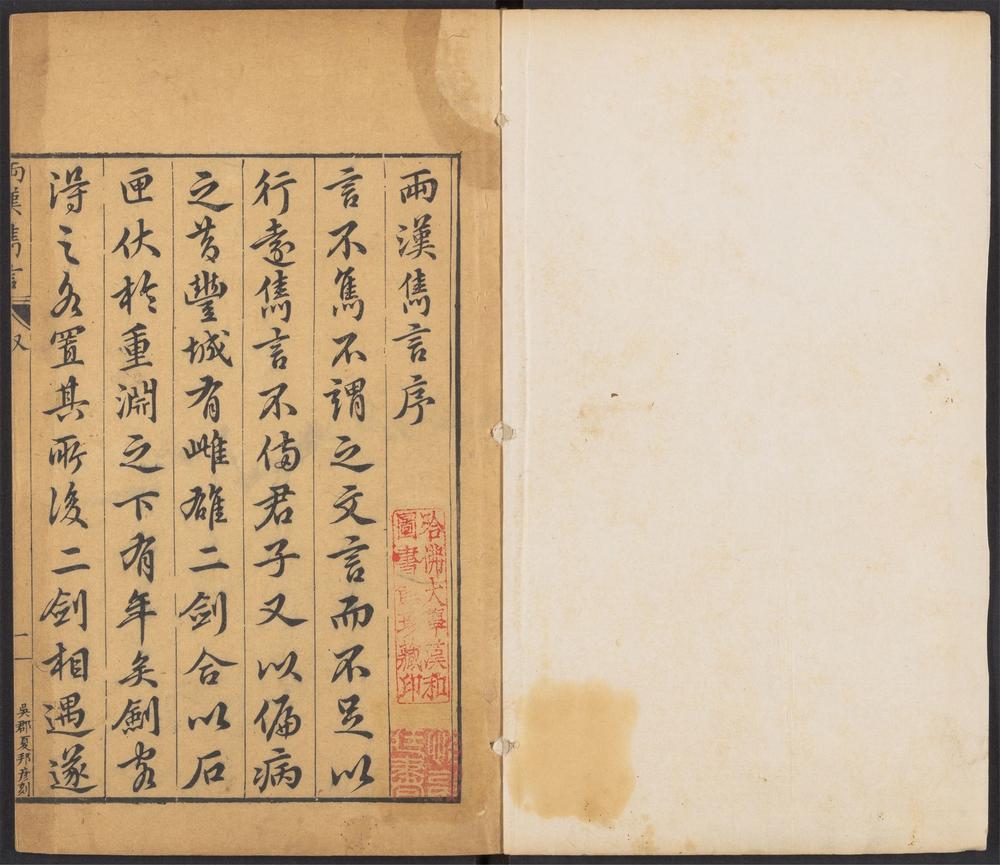 兩漢雋言序
言不雋不謂之文言而不足以
行遠雋言不備君子又以偏病
之昔豐城有雌雄二劍合以石
匣伏於重淵之下有年矣劍客
得之各置其所後二劍相遇遂
兩漢雋言
一
吳郡夏邦彦刻
哈佛大學漢和
圖書館珍藏印